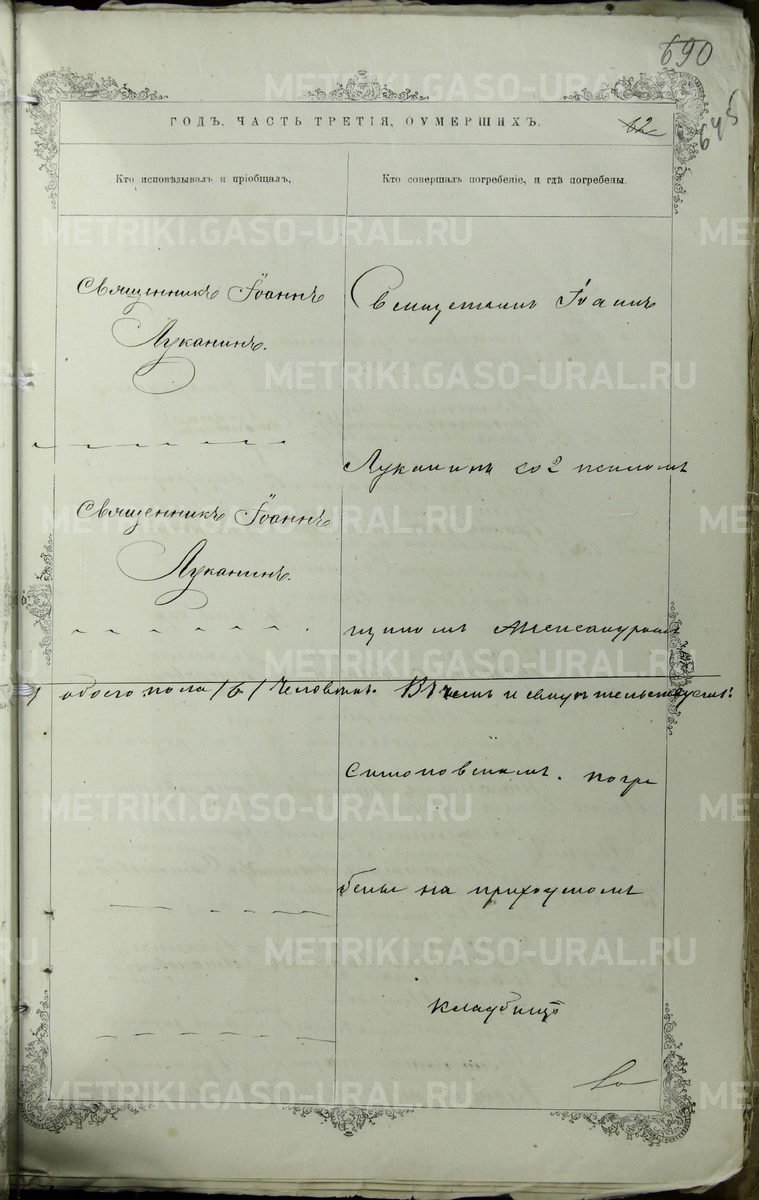 690
645
ГОДЪ, ЧАСТЬ ТРЕТІЯ, ОУМЕРШИХЪ.
62
Кто исповѣдывалъ и пріобщалъ,
Кто совершалъ погребеніе, и гдѣ погребены.
Священникъ Іоаннъ
Луканинъ.
Священникъ Іоаннъ
Луканинъ.
Священникъ Іоаннъ
Луканинъ со псалом
щикомъ Александромъ
обоего пола 161 человѣкъ. Въ чемъ и свидѣтельствуемъ:
Симоновскимъ. погре
бены на приходскомъ
кладбищѣ
METRIKI.GASO-URAL.RU